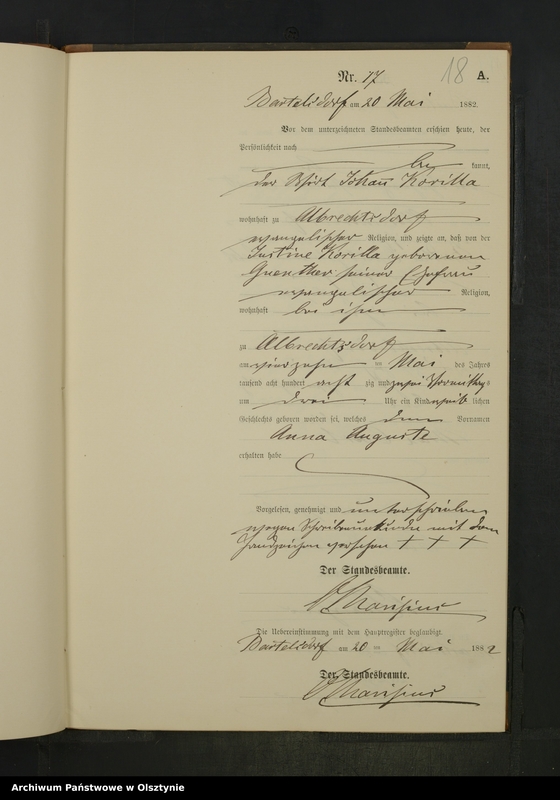 18
Nr. 17 A.
Bartelsdorf am 20 Mai 1882.
Vor dem unterzeichneten Standesbeamten erschien heute, der
Persönlichkeit nach
be kannt,
der Wirt Johann Korilla
wohnhaft zu Albrechtsdorf
evangelischer Religion, und zeigte an, daß von der
Justine Korilla geborenen
Guenther seiner Ehefrau
evangelischer Religion,
wohnhaft bei ihm
zu Albrechtsdorf
am vierzehn ten Mai des Jahres
tausend acht hundert acht zig und zwei Vormittags
um drei Uhr ein Kind weib lichen
Geschlechts geboren worden sei, welches den Vornamen
Anna Auguste
erhalten habe
Vorgelesen, genehmigt und unterschrieben
wegen Schreibensunkunde mit dem
Handzeichen versehen + + +
Der Standesbeamte.
Die Uebereinstimmung mit dem Hauptregister beglaubigt.
Bartelsdorf am 20 ten Mai 1882
Der Standesbeamte.
Archiwum Państwowe w Olsztynie